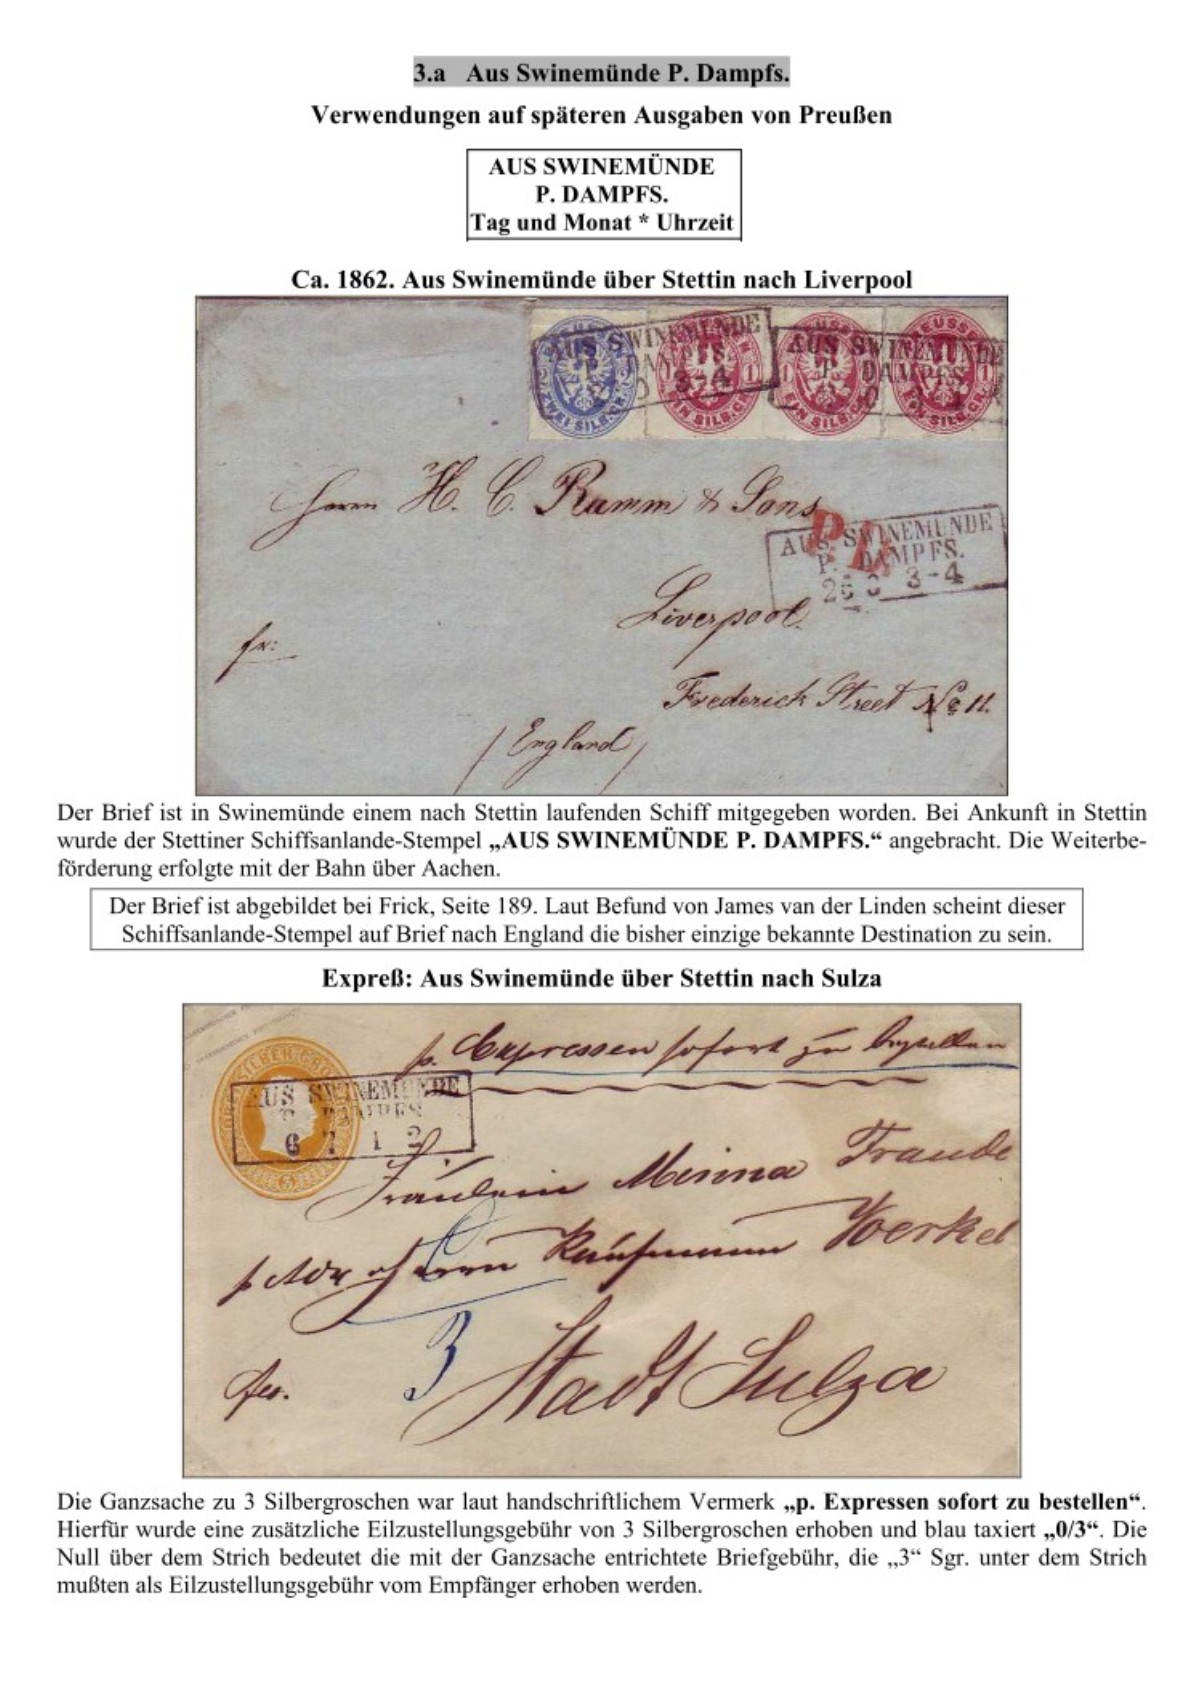 3.a Aus Swinemünde P. Dampfs.
Verwendungen auf späteren Ausgaben von Preußen
AUS SWINEMÜNDE
P. DAMPFS.
Tag und Monat * Uhrzeit
Ca. 1862. Aus Swinemünde über Stettin nach Liverpool
AUS SWINEMÜNDE
P. DAMPFS.
3-4
AUS SWINEMÜNDE
P. DAMPFS.
ZWEI SILB.GR.
EIN SILB.GR.
EIN SILB.GR.
Herrn H. C. Ramm & Sons
P.D.
AUS SWINEMÜNDE
P. DAMPFS.
3-4
Liverpool.
fr:
Frederick Street No 11.
/ England /
Der Brief ist in Swinemünde einem nach Stettin laufenden Schiff mitgegeben worden. Bei Ankunft in Stettin
wurde der Stettiner Schiffsanlande-Stempel „AUS SWINEMÜNDE P. DAMPFS.“ angebracht. Die Weiterbe-
förderung erfolgte mit der Bahn über Aachen.
Der Brief ist abgebildet bei Frick, Seite 189. Laut Befund von James van der Linden scheint dieser
Schiffsanlande-Stempel auf Brief nach England die bisher einzige bekannte Destination zu sein.
Expreß: Aus Swinemünde über Stettin nach Sulza
p. Expressen sofort zu bestellen
AUS SWINEMÜNDE
P. DAMPFS
6 7 1 2
Fräulein Minna Traude
p Adr Herrn Kaufmann Werkel
0
3
fr.
Stadt Sulza
Die Ganzsache zu 3 Silbergroschen war laut handschriftlichem Vermerk „p. Expressen sofort zu bestellen“.
Hierfür wurde eine zusätzliche Eilzustellungsgebühr von 3 Silbergroschen erhoben und blau taxiert „0/3“. Die
Null über dem Strich bedeutet die mit der Ganzsache entrichtete Briefgebühr, die „3“ Sgr. unter dem Strich
mußten als Eilzustellungsgebühr vom Empfänger erhoben werden.